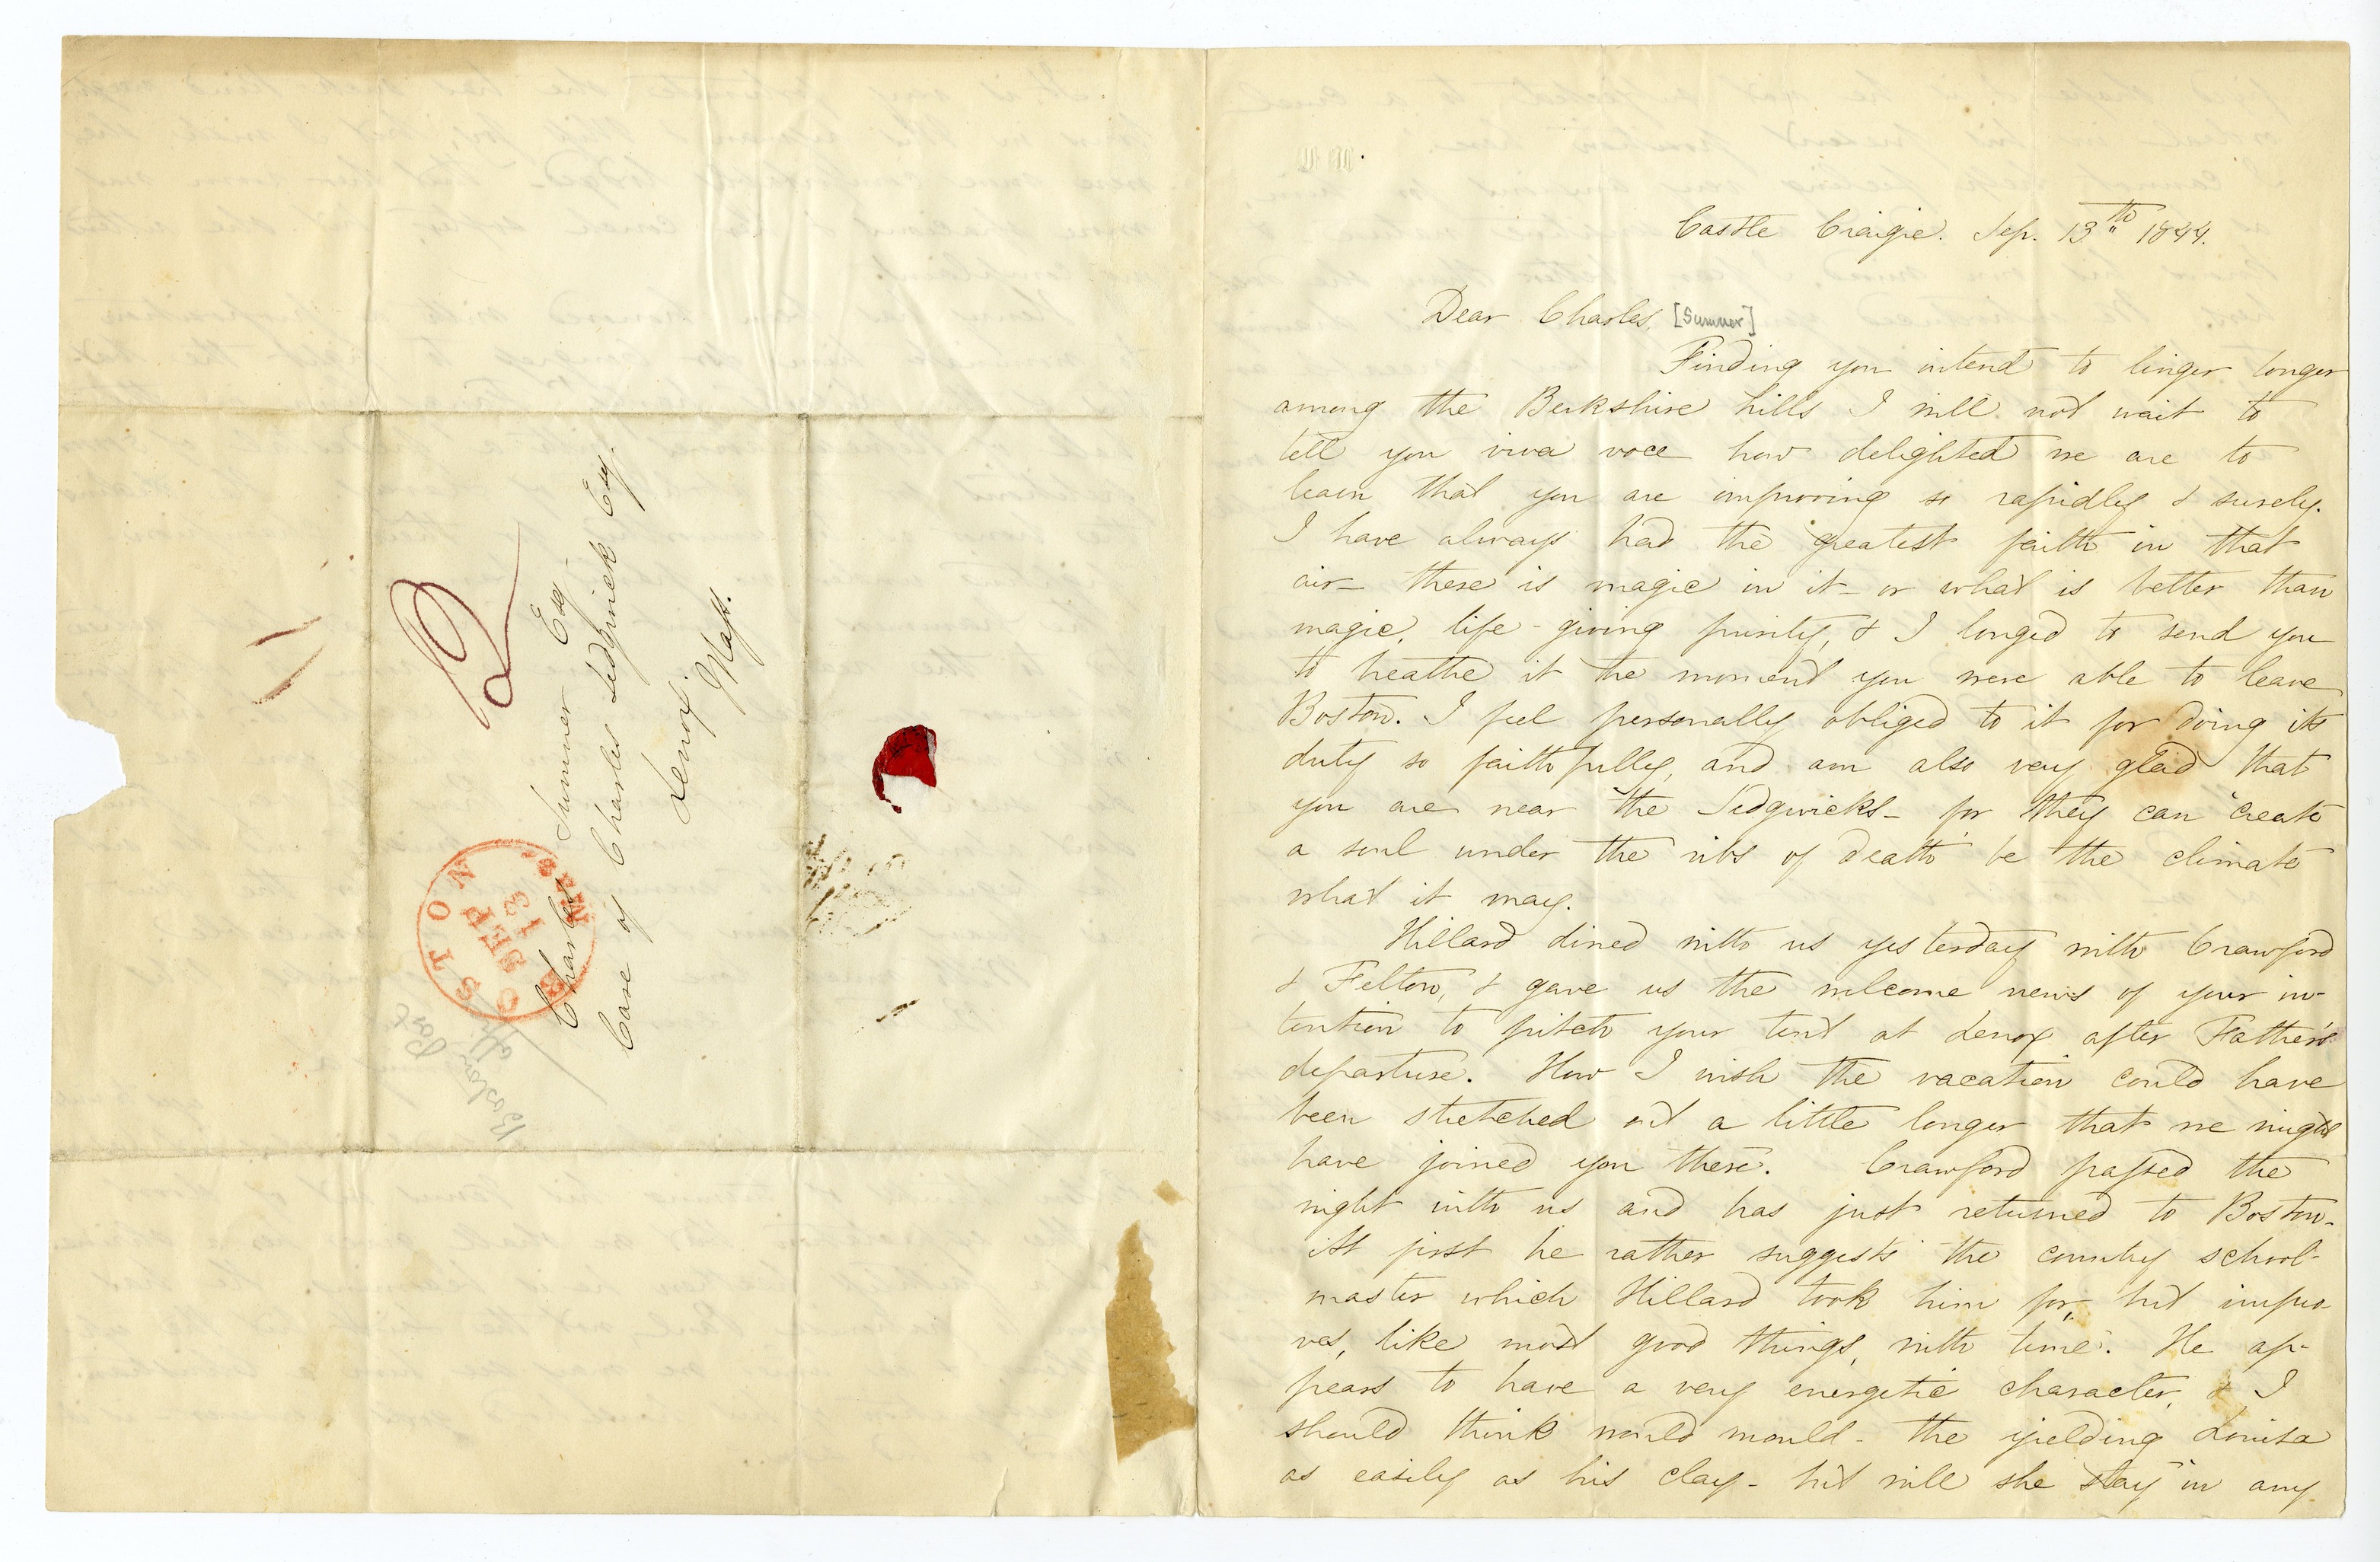 Charles Sumner Esq.
Care of Charles Sedgwick Esq.
Lenox.
Mass.
BOSTON
SEP
13
Mass.
Boston Post
Castle Craigie. Sep. 13th 1844.
Dear Charles, [Sumner]
Finding you intend to linger longer
among the Berkshire hills I will not wait to
tell you viva voce how delighted we are to
learn that you are improving so rapidly & surely.
I have always had the greatest faith in that
air – there is magic in it – or what is better than
magic, life-giving purity, & I longed to send you
to breathe it the moment you were able to leave
Boston. I feel personally obliged to it for doing its
duty so faithfully, and am also very glad that
you are near the Sedgwicks – for they can "create
a soul under the ribs of death" be the climate
what it may.
Hillard dined with us yesterday with Crawford
& Felton, & gave us the welcome news of your in-
tention to pitch your tent at Lenox after Father's
departure. How I wish the vacation could have
been stretched out a little longer that we might
have joined you there. Crawford passed the
night with us and has just returned to Boston.
At first he rather suggests the country school-
master which Hillard took him for, but impro-
ves, like most good things, with time. He ap-
pears to have a very energetic character, & I
should think would mould – the yielding Louisa
as easily as his clay – but will she stay in any